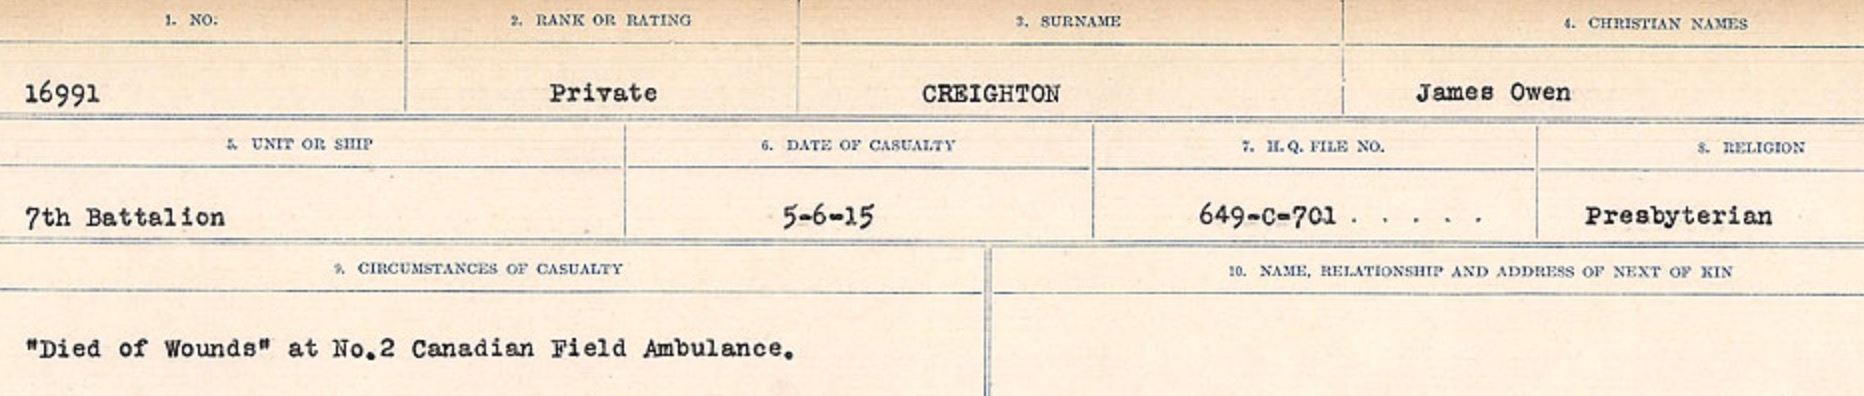 1. NO. 2. RANK OR RATING 3. SURNAME 4. CHRISTIAN NAMES
16991 Private CREIGHTON James Owen
5. UNIT OR SHIP 6. DATE OF CASUALTY 7. H.Q. FILE NO. 8. RELIGION
7th Battalion 5-6-15 649-C-701 . . . . . Presbyterian
9. CIRCUMSTANCES OF CASUALTY 10. NAME, RELATIONSHIP AND ADDRESS OF NEXT OF KIN
"Died of Wounds" at No.2 Canadian Field Ambulance.